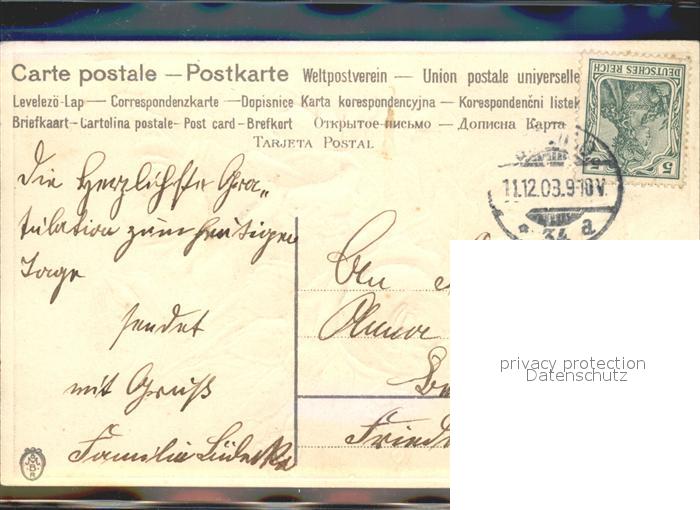 Carte postale — Postkarte Weltpostverein — Union postale universelle
Levelező-Lap — Correspondenzkarte — Dopisnice Karta korespondencyjna — Korespondenční lístek
Briefkaart — Cartolina postale - Post card - Brefkort Открытое письмо — Дописна Карта
TARJETA POSTAL
DEUTSCHES REICH
5
11.12.03.9-10V.
* 34 a
Die Herzlichste Gra„
tulation zum heutigen
Tage
sendet
mit Gruß
Familie Lüdecke
An
Anna
Fried
privacy protection
Datenschutz